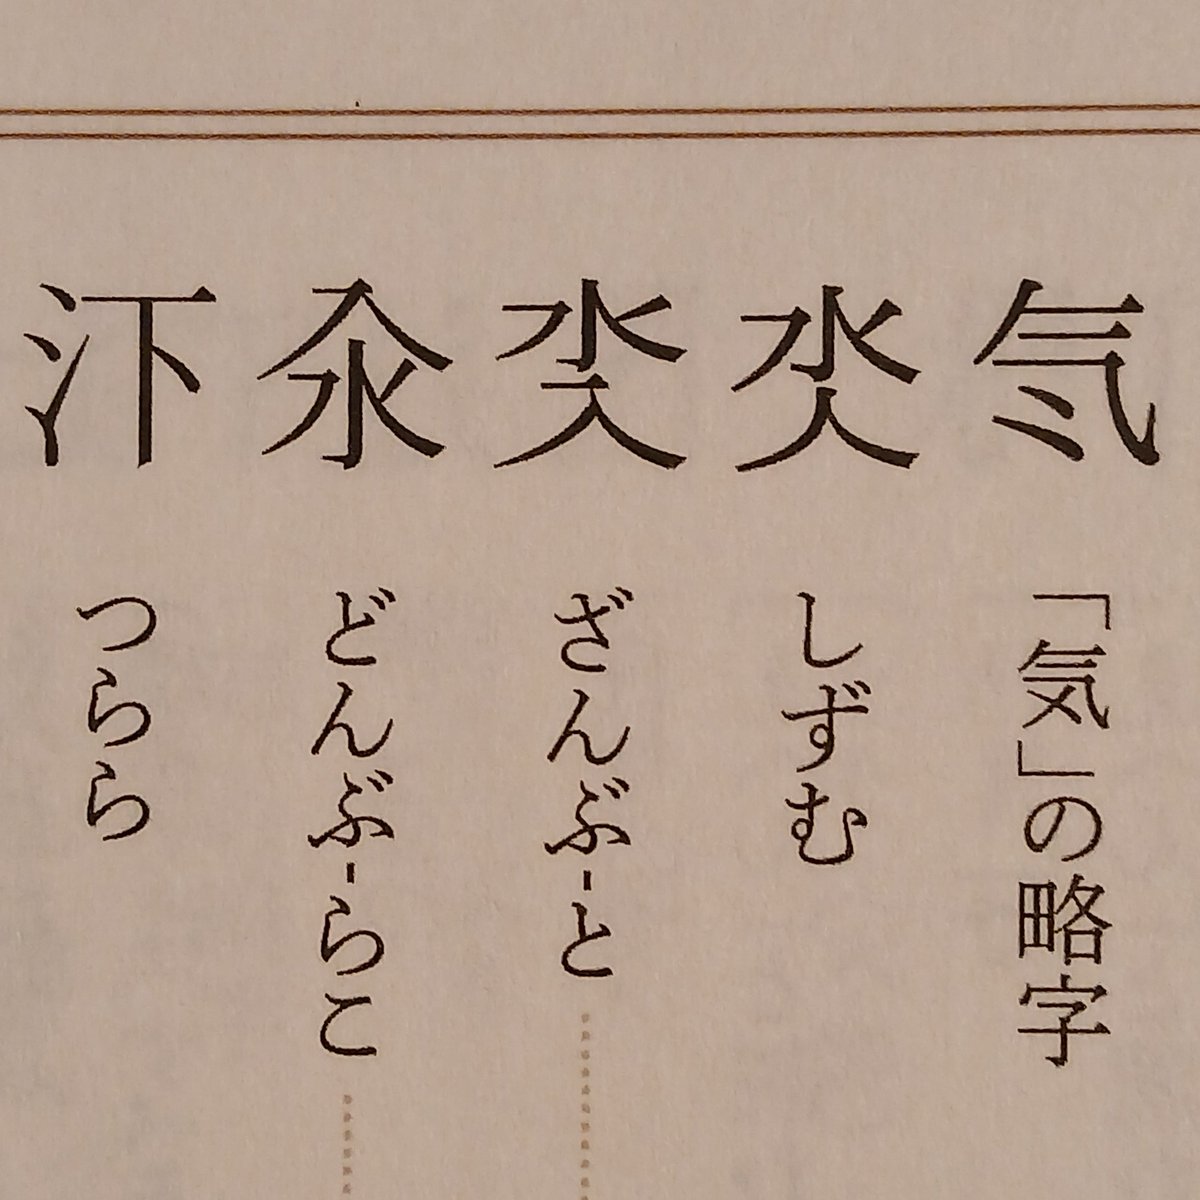 「気」の略字
氼 しずむ
ざんぶ-と
汆 どんぶ-らこ
つらら